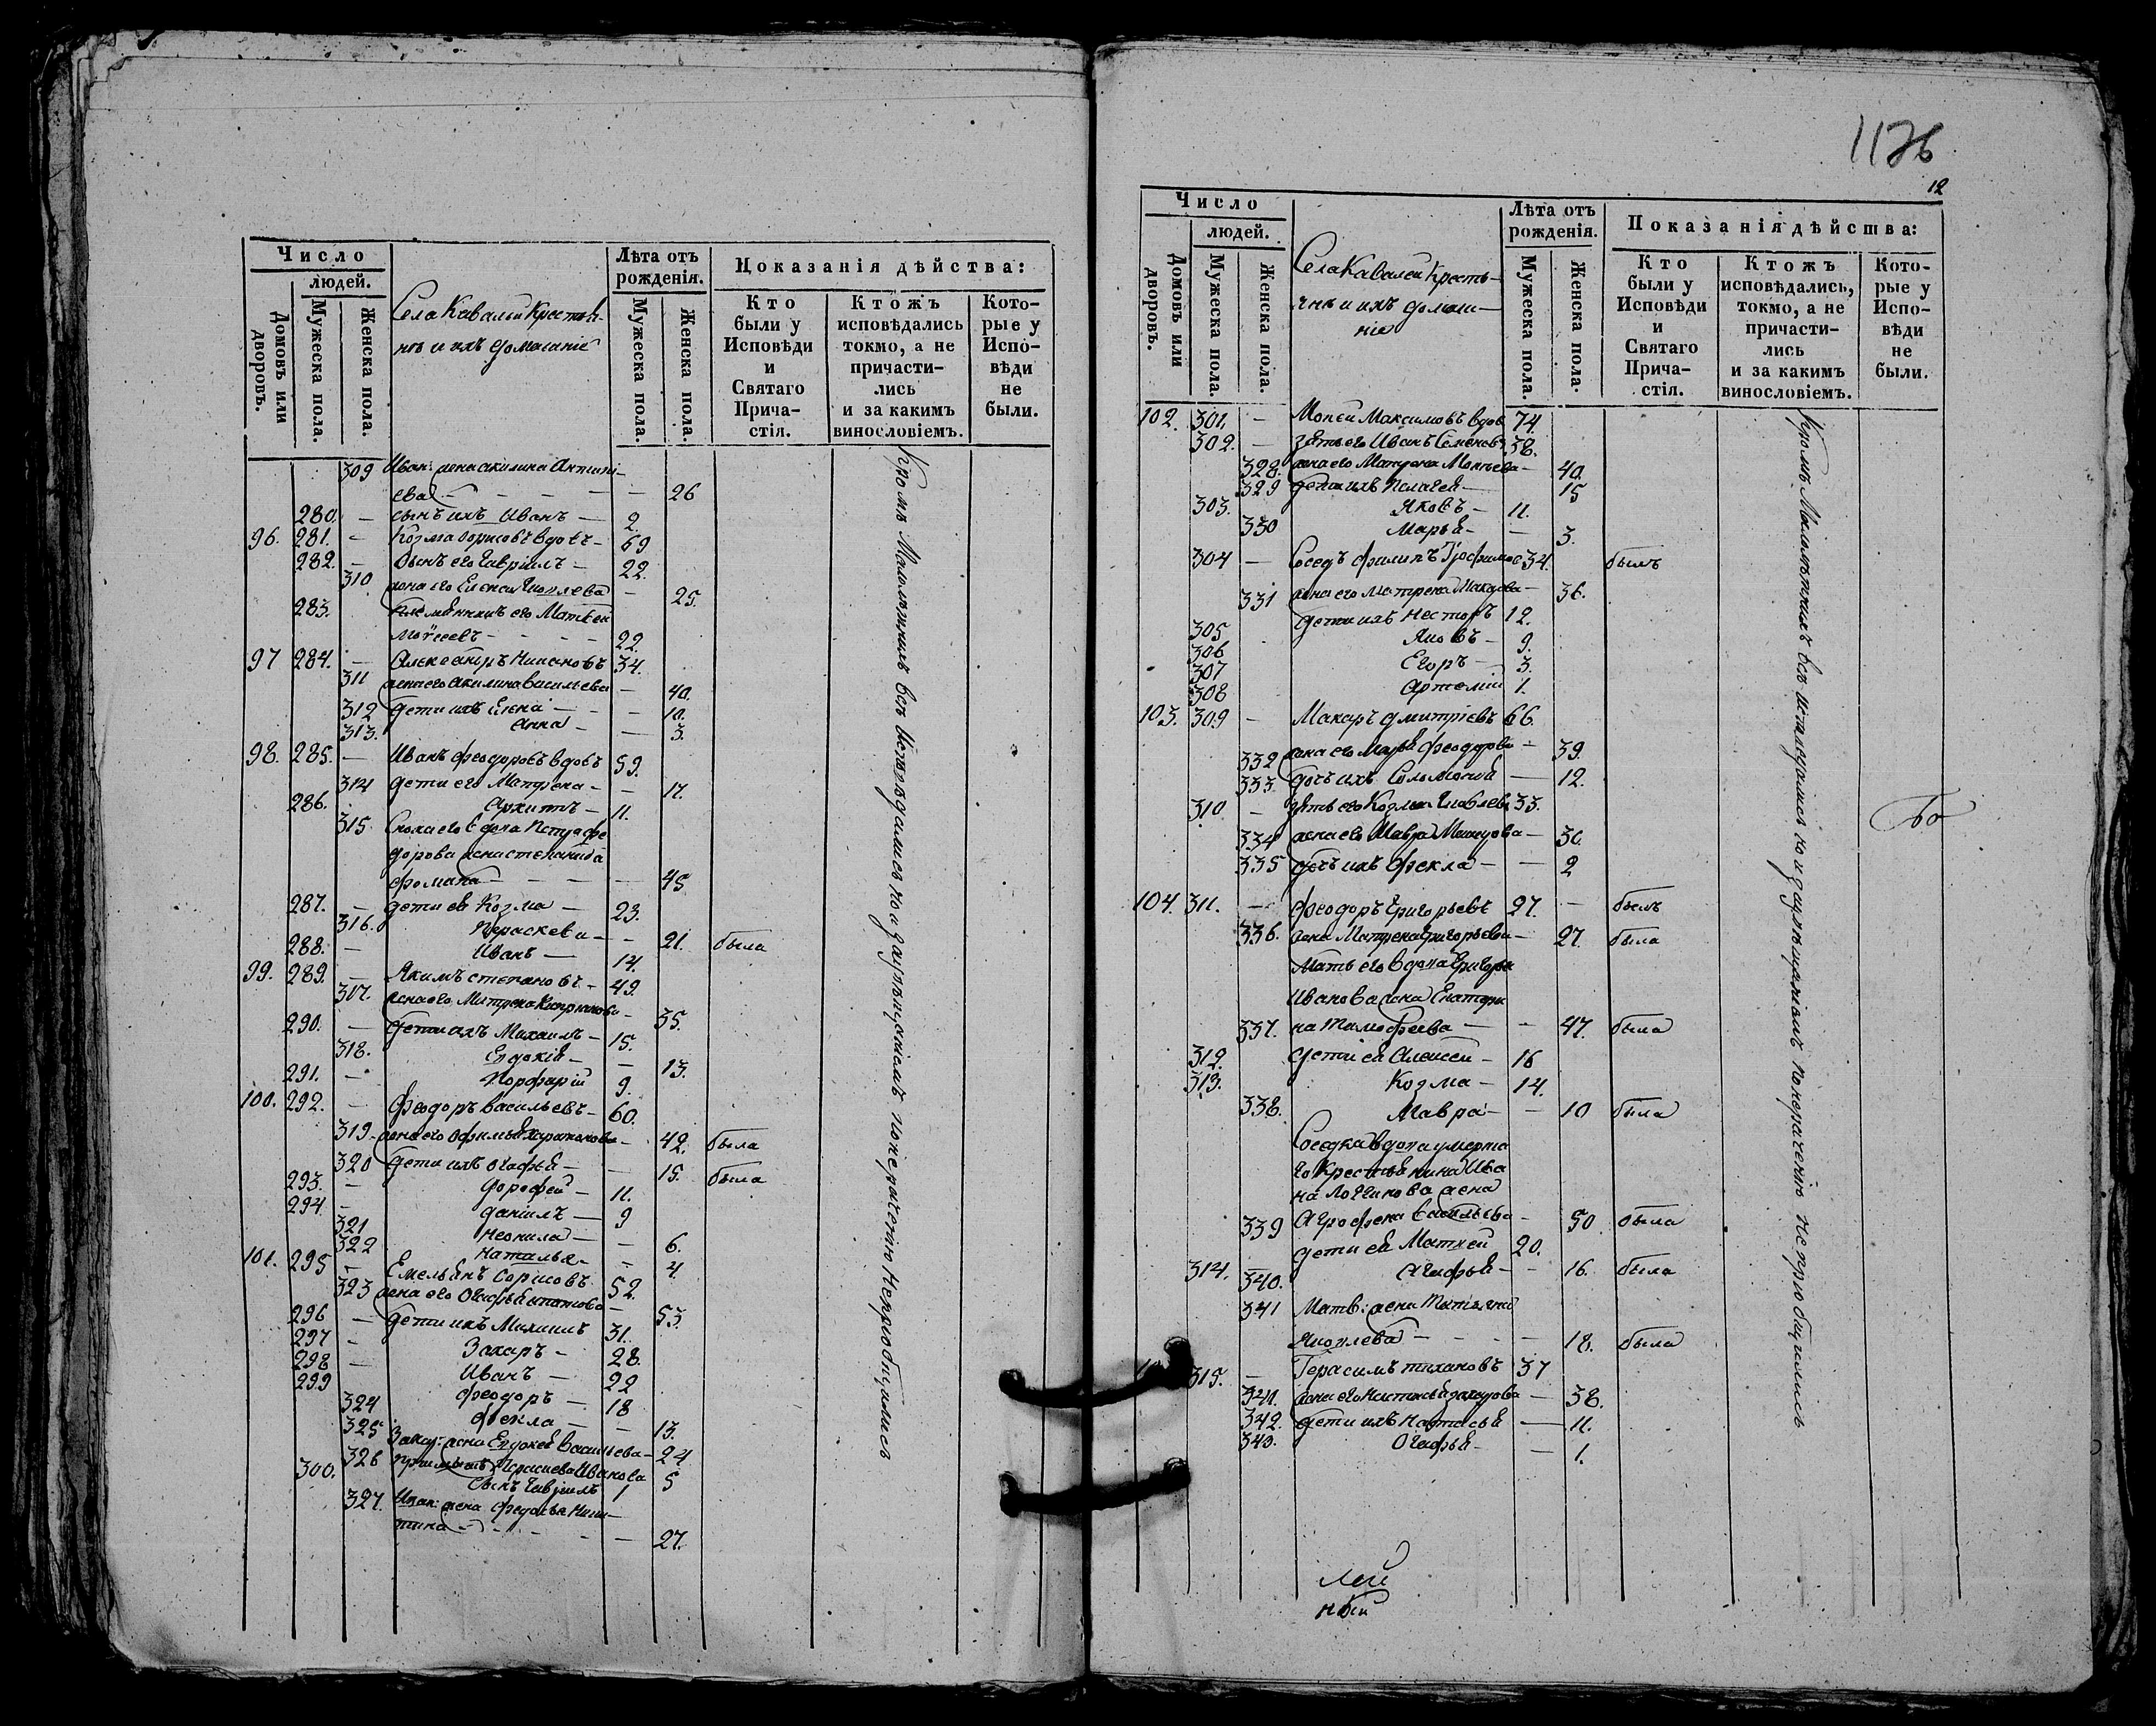 Число
людей.
Домовъ или дворовъ.
Мужеска пола.
Женска пола.
Села Кавалей Крестья-
нъ и ихъ домашніе
Лѣта отъ рожденія.
Мужеска пола.
Женска пола.
Показанія дѣйства:
Кто были у Исповѣди и Святаго Прича-стія.
Ктожъ исповѣдались токмо, а не причасти-лись и за какимъ винословіемъ.
Кото-рые у Испо-вѣди не были.
309 Иван: жена акилина Антипі-
ева — 26
280. — сынъ ихъ Иванъ — 2.
96. 281. — Козма Борисовъ вдовъ — 69
282. — Сынъ его Гавріилъ — 22.
310 жена его Елена Яковлева — 25.
283. племянникъ его Матвей
Моѵсеевъ — 22.
97 284. — Александръ 34.
311 жена его Акилина Васильева — 40.
312 дети ихъ Елена — 10.
313. Анна — 3.
98. 285. — Иванъ Феодоровъ вдовъ 59.
314 дети его Матрена — 17.
286. Архипъ — 11.
315 Сноха его вдова Петра Фе
дорова жена степанида
45
287. — дети ея Козма — 23.
316. Параскева — 21. была
288. — Иванъ — 14.
99. 289. — Якимъ степановъ — 49.
317. жена его Матрена — 35.
290. — дети ихъ Михаилъ — 15.
318. Евдокія — 13.
291. — Порфирій 9.
100. 292. — Феодоръ Васильевъ — 60.
319. жена его Офимья — 42. была
320 дети ихъ Огафья — 15. была
293. — Дорофей — 11.
294 — Даніилъ — 9
321 Неонила — 6.
322 Наталья — 4.
101. 295 — Емельянъ Борисовъ 52.
323 жена его Огафья — 53.
296 — дети ихъ Михаилъ 31.
297 — Захаръ — 28.
298 — Иванъ — 22
299 Феодоръ — 18
324 Фекла — 13.
325 Захар: жена Евдокея Васильева — 24
326 Иванова 5
300. Сынъ Гавріилъ 1
327. Иван: жена Федосья Ники-
тина — 27.
Кромѣ Малолѣтнихъ всѣ Исповѣдались но за упущеніемъ по нераченію Непріобщились
1176
12
Число
людей.
Домовъ или дворовъ.
Мужеска пола.
Женска пола.
Села Кавалей Кресть-
янъ и ихъ домаш-
ніе
Лѣта отъ рожденія.
Мужеска пола.
Женска пола.
Показанія дѣйства:
Кто были у Исповѣди и Святаго Прича-стія.
Ктожъ исповѣдались, токмо, а не причасти-лись и за какимъ винословіемъ.
Кото-рые у Испо-вѣди не были.
102. 301. — Мокей Максимовъ вдов 74.
302. — Зять его Иванъ Семеновъ 38.
328. жена его Матрена Мокеева — 40.
329 дети ихъ Пелагея — 15
303. Яковъ — 11.
330 Марья — 3.
304 — Соседъ Филипъ Трофимов 34. былъ
331 жена его Матрена Макарова — 36.
305 дети ихъ Несторъ 12.
306 Яковъ — 9.
307 Егоръ — 3.
308 Артемій 1.
103. 309 — Макаръ Дмитріевъ 66.
332 жена его Марья Феодорова — 39.
333. дочь ихъ Соломонія — 12.
310 — Зять его Козма Яковлевъ 33.
334 жена его Мавра Макарова — 30.
335 дочь ихъ Фекла — 2
Бо
104. 311. — Феодоръ Григорьевъ 27. — былъ
336. жена Матрена Григорьева — 27. была
Мать его вдова Григорья
Иванова жена Екатери
337. на Тимофеева — 47. была
312. дети ея Алексей — 16
313. Козма — 14.
338. Мавра — 10 была
Соседка вдова умерша
го Крестьянина Ива
на Логинова жена
339 Агрофена Васильева — 50 была
314. дети ея Матвей 20.
340. Агафья — 16. была
341 Матв: жена Татіяна
Яковлева — 18. была
315. — Герасимъ тихановъ 37
341. жена его Настасья Захарова — 38.
342. дети ихъ Настасья — 11.
343. Огафья — 1.
Кромѣ Малолѣтнихъ всѣ Исповѣдались но за упущеніемъ по нераченію непріобщились
лей
ный